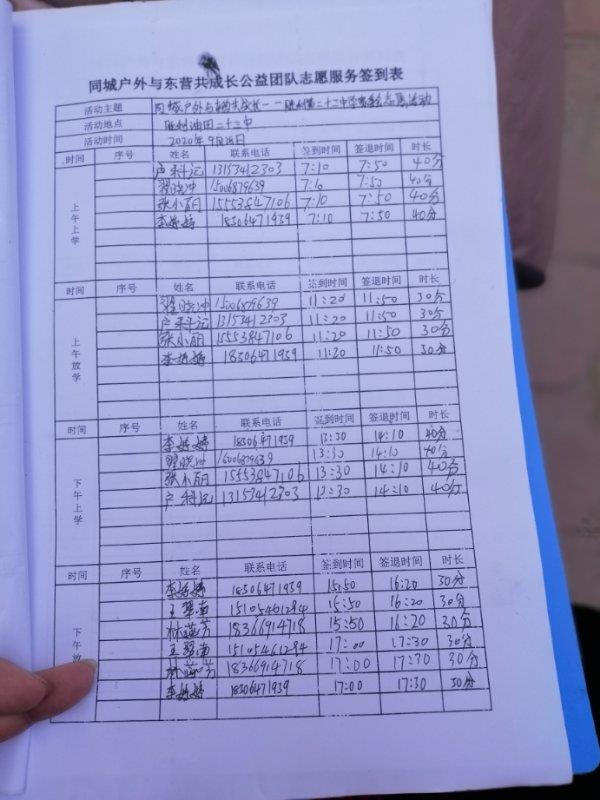 同城户外与东营共成长公益团队志愿服务签到表
活动主题 同城户外与东营共成长——胜利第二十二中学 志愿活动
活动地点 胜利油田二十二中
活动时间 2020年9月 日
时间 序号 姓名 联系电话 签到时间 签退时间 时长
上午上学
卢科记 13153412303 7:10 7:50 40分
晓冲 15006879639 7:10 7:50 40分
张小丽 15553847106 7:10 7:50 40分
李 18306471939 7:10 7:50 40分
时间 序号 姓名 联系电话 签到时间 签退时间 时长
上午放学
晓冲 15006879639 11:20 11:50 30分
卢科记 13153412303 11:20 11:50 30分
张小丽 15553847106 11:20 11:50 30分
李 18306471939 11:20 11:50 30分
时间 序号 姓名 联系电话 签到时间 签退时间 时长
下午上学
李 18306471939 13:30 14:10 40分
晓冲 15006879639 13:30 14:10 40分
张小丽 15553847106 13:30 14:10 40分
卢科记 13153412303 13:30 14:10 40分
时间 序号 姓名 联系电话 签到时间 签退时间 时长
下午放
李 18306471939 15:50 16:20 30分
王翠南 15105461294 15:50 16:20 30分
林 芳 18366914718 15:50 16:20 30分
王翠南 15105461294 17:00 17:30 30分
林 芳 18366914718 17:00 17:30 30分
李 18306471939 17:00 17:30 30分